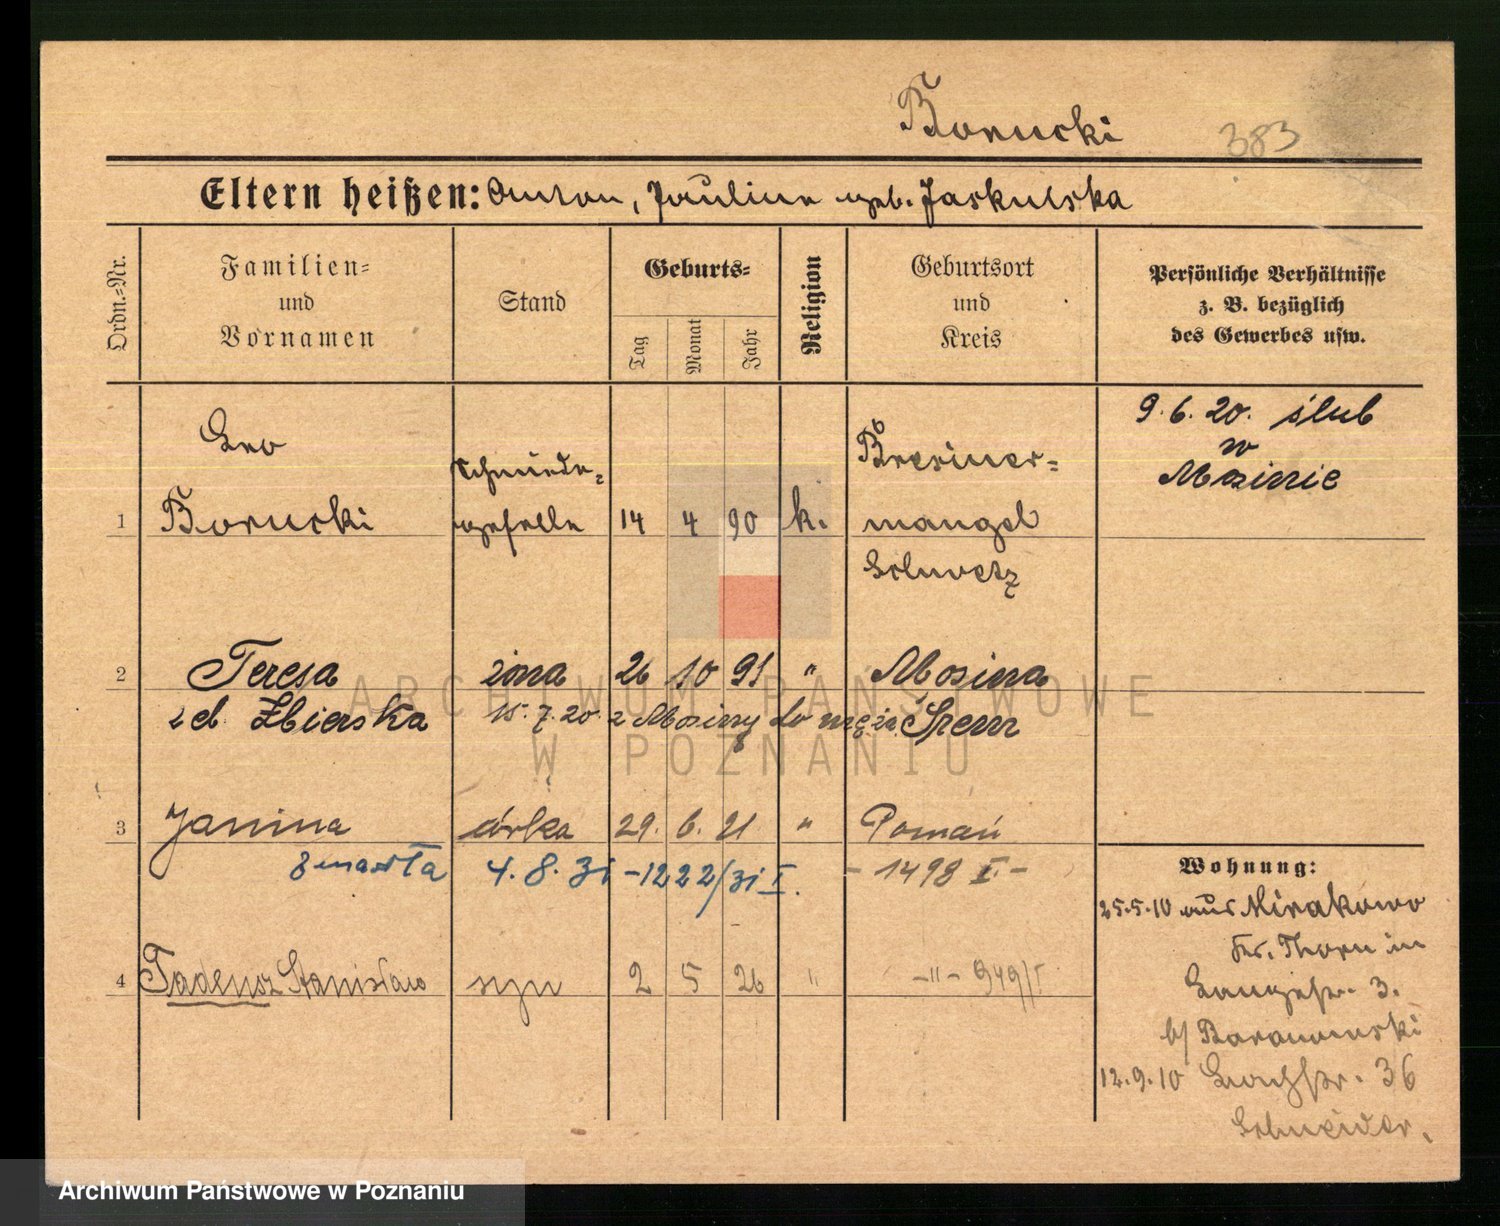 Borucki 383
Eltern heißen: Anton, Pauline geb. Jaskulska
Ordn.-Nr.
Familien-
und
Vornamen
Stand
Geburts-
Tag
Monat
Jahr
Religion
Geburtsort
und
Kreis
Persönliche Verhältnisse
z. B. bezüglich
des Gewerbes usw.
Leo
Schmiede-
1 Borucki geselle 14 4 90 k.
Bresiner-
mangel
Schwetz
9.6.20. ślub
w
Mosinie
2 Teresa żona 26 10 91 " Mosina
z d. Zbierska 15.7.20 z Mosiny do męża Śrem
3 Janina córka 29. 6. 21 " Poznań
zmarła 4.8.31 -1222/31 I. - 1498 I -
4 Tadeusz Stanisław syn 2 5 26 " -"- 949/I
Wohnung:
25.5.10 aus Mirakowo
Kr. Thorn in
Langestr. 3.
b/ Baranowski
12.9.10 36
Schneider.
ARCHIWUM PAŃSTWOWE
W POZNANIU
Archiwum Państwowe w Poznaniu